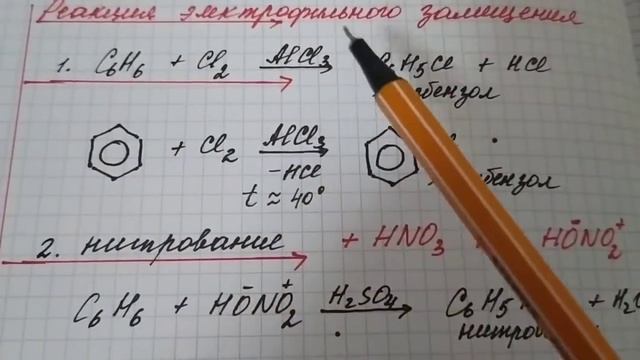 Реакция электрофильного замещения
1. C₆H₆ + Cl₂ AlCl₃ → C₆H₅Cl + HCl
+ Cl₂ AlCl₃ →
-HCl
t ≈ 40°
2. нитрование + HNO₃ HŌNO₂⁺
C₆H₆ + HŌNO₂⁺ H₂SO₄ → C₆H₅ + H₂